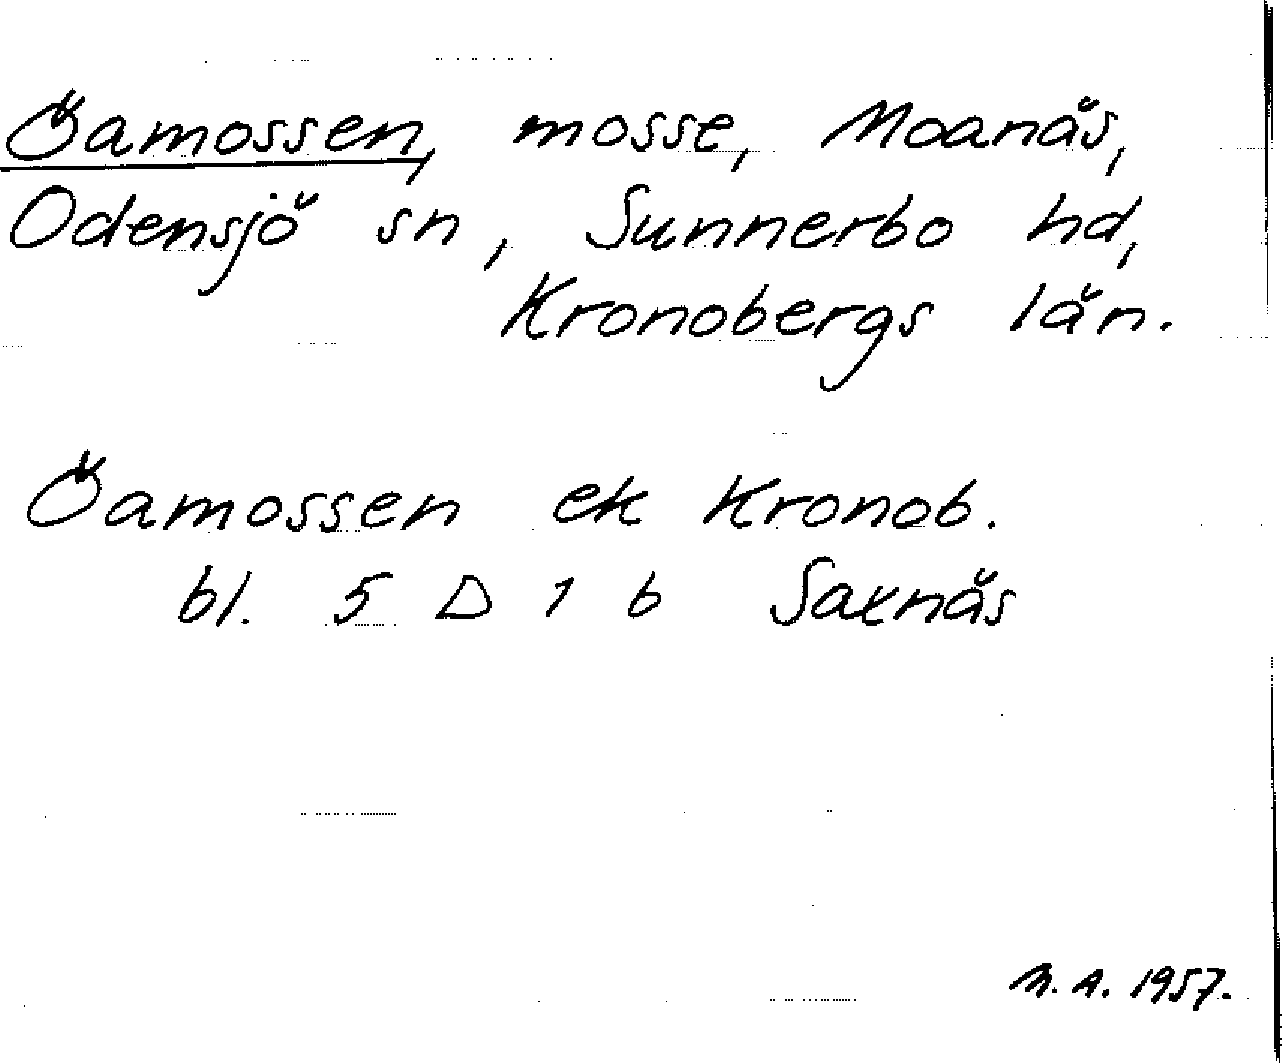 Öamossen, mosse, Moanäs,
Odensjö sn, Sunnerbo hd,
Kronobergs län.
Öamossen ek Kronob.
bl. 5 D 1 b Saxnäs
M.A. 1957.